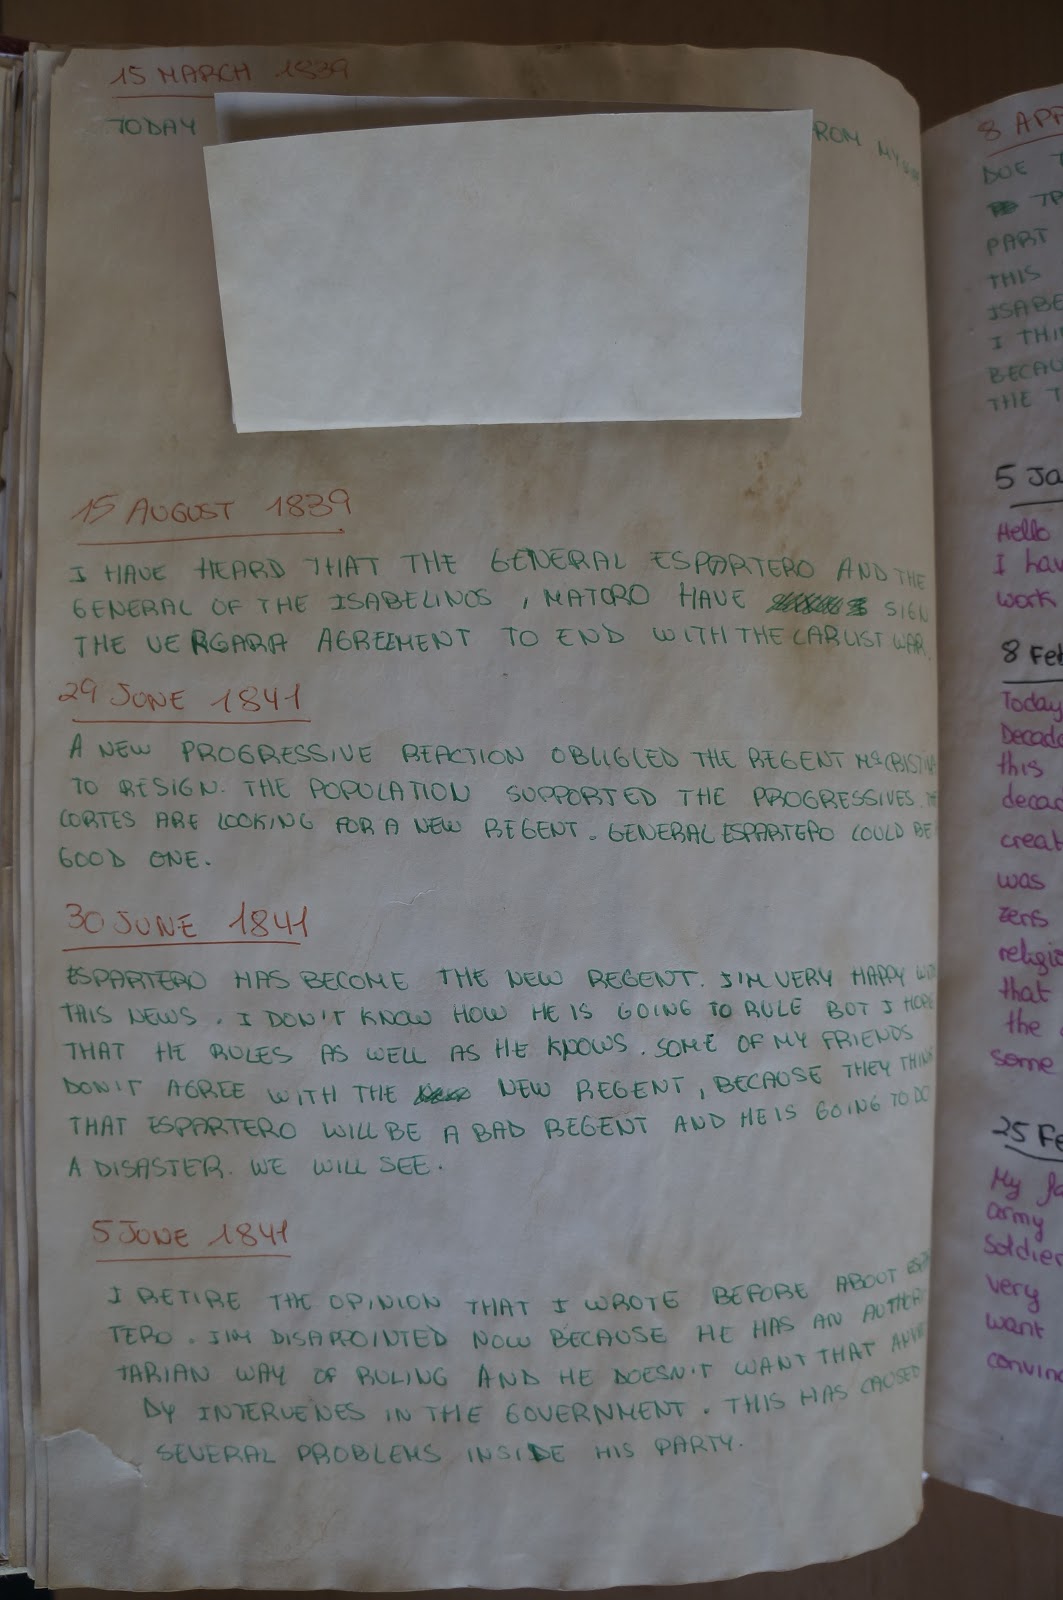 15 MARCH 1839
TODAY ROM MY
15 AUGUST 1839
I HAVE HEARD THAT THE GENERAL ESPARTERO AND THE
GENERAL OF THE ISABELINOS , MATORO HAVE SIGN
THE VERGARA AGREEMENT TO END WITH THE CARLIST WAR.
29 JUNE 1841
A NEW PROGRESSIVE REACTION OBLIGLED THE REGENT
TO RESIGN. THE POPULATION SUPPORTED THE PROGRESSIVES.
CORTES ARE LOOKING FOR A NEW REGENT. GENERAL ESPARTERO COULD BE
GOOD ONE.
30 JUNE 1841
ESPARTERO HAS BECOME THE NEW REGENT. I'M VERY HAPPY
THIS NEWS. I DON'T KNOW HOW HE IS GOING TO RULE BUT I HOPE
THAT HE RULES AS WELL AS HE KNOWS. SOME OF MY FRIENDS
DON'T AGREE WITH THE NEW REGENT, BECAUSE THEY THINK
THAT ESPARTERO WILL BE A BAD REGENT AND HE IS GOING TO DO
A DISASTER. WE WILL SEE.
5 JUNE 1841
I RETIRE THE OPINION THAT I WROTE BEFORE ABOUT
TERO. I'M DISAPOINTED NOW BECAUSE HE HAS AN
TARIAN WAY OF RULING AND HE DOESN'T WANT THAT
DY INTERVENES IN THE GOVERNMENT. THIS HAS CAUSED
SEVERAL PROBLEMS INSIDE HIS PARTY.
8 APR
DUE T
TR
PART
THIS
ISABE
I THIN
BECAU
THE T
5 Ja
Hello
I hav
work
8 Feb
Today
Decade
this
decad
creat
was
zens
religio
that
the
some
25 Fe
My fa
army
Soldier
very
want
convinc